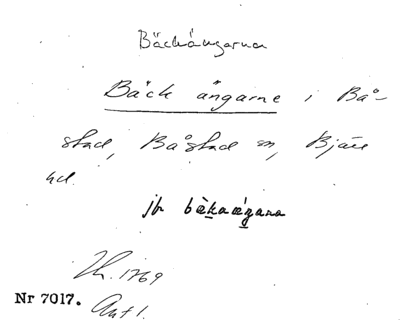 Bäckängarna
Bäck ängarne i Bå-
stad, Båstad sn, Bjäre
hd.
jb
Lh. 1769
Nr 7017. Ant 1.